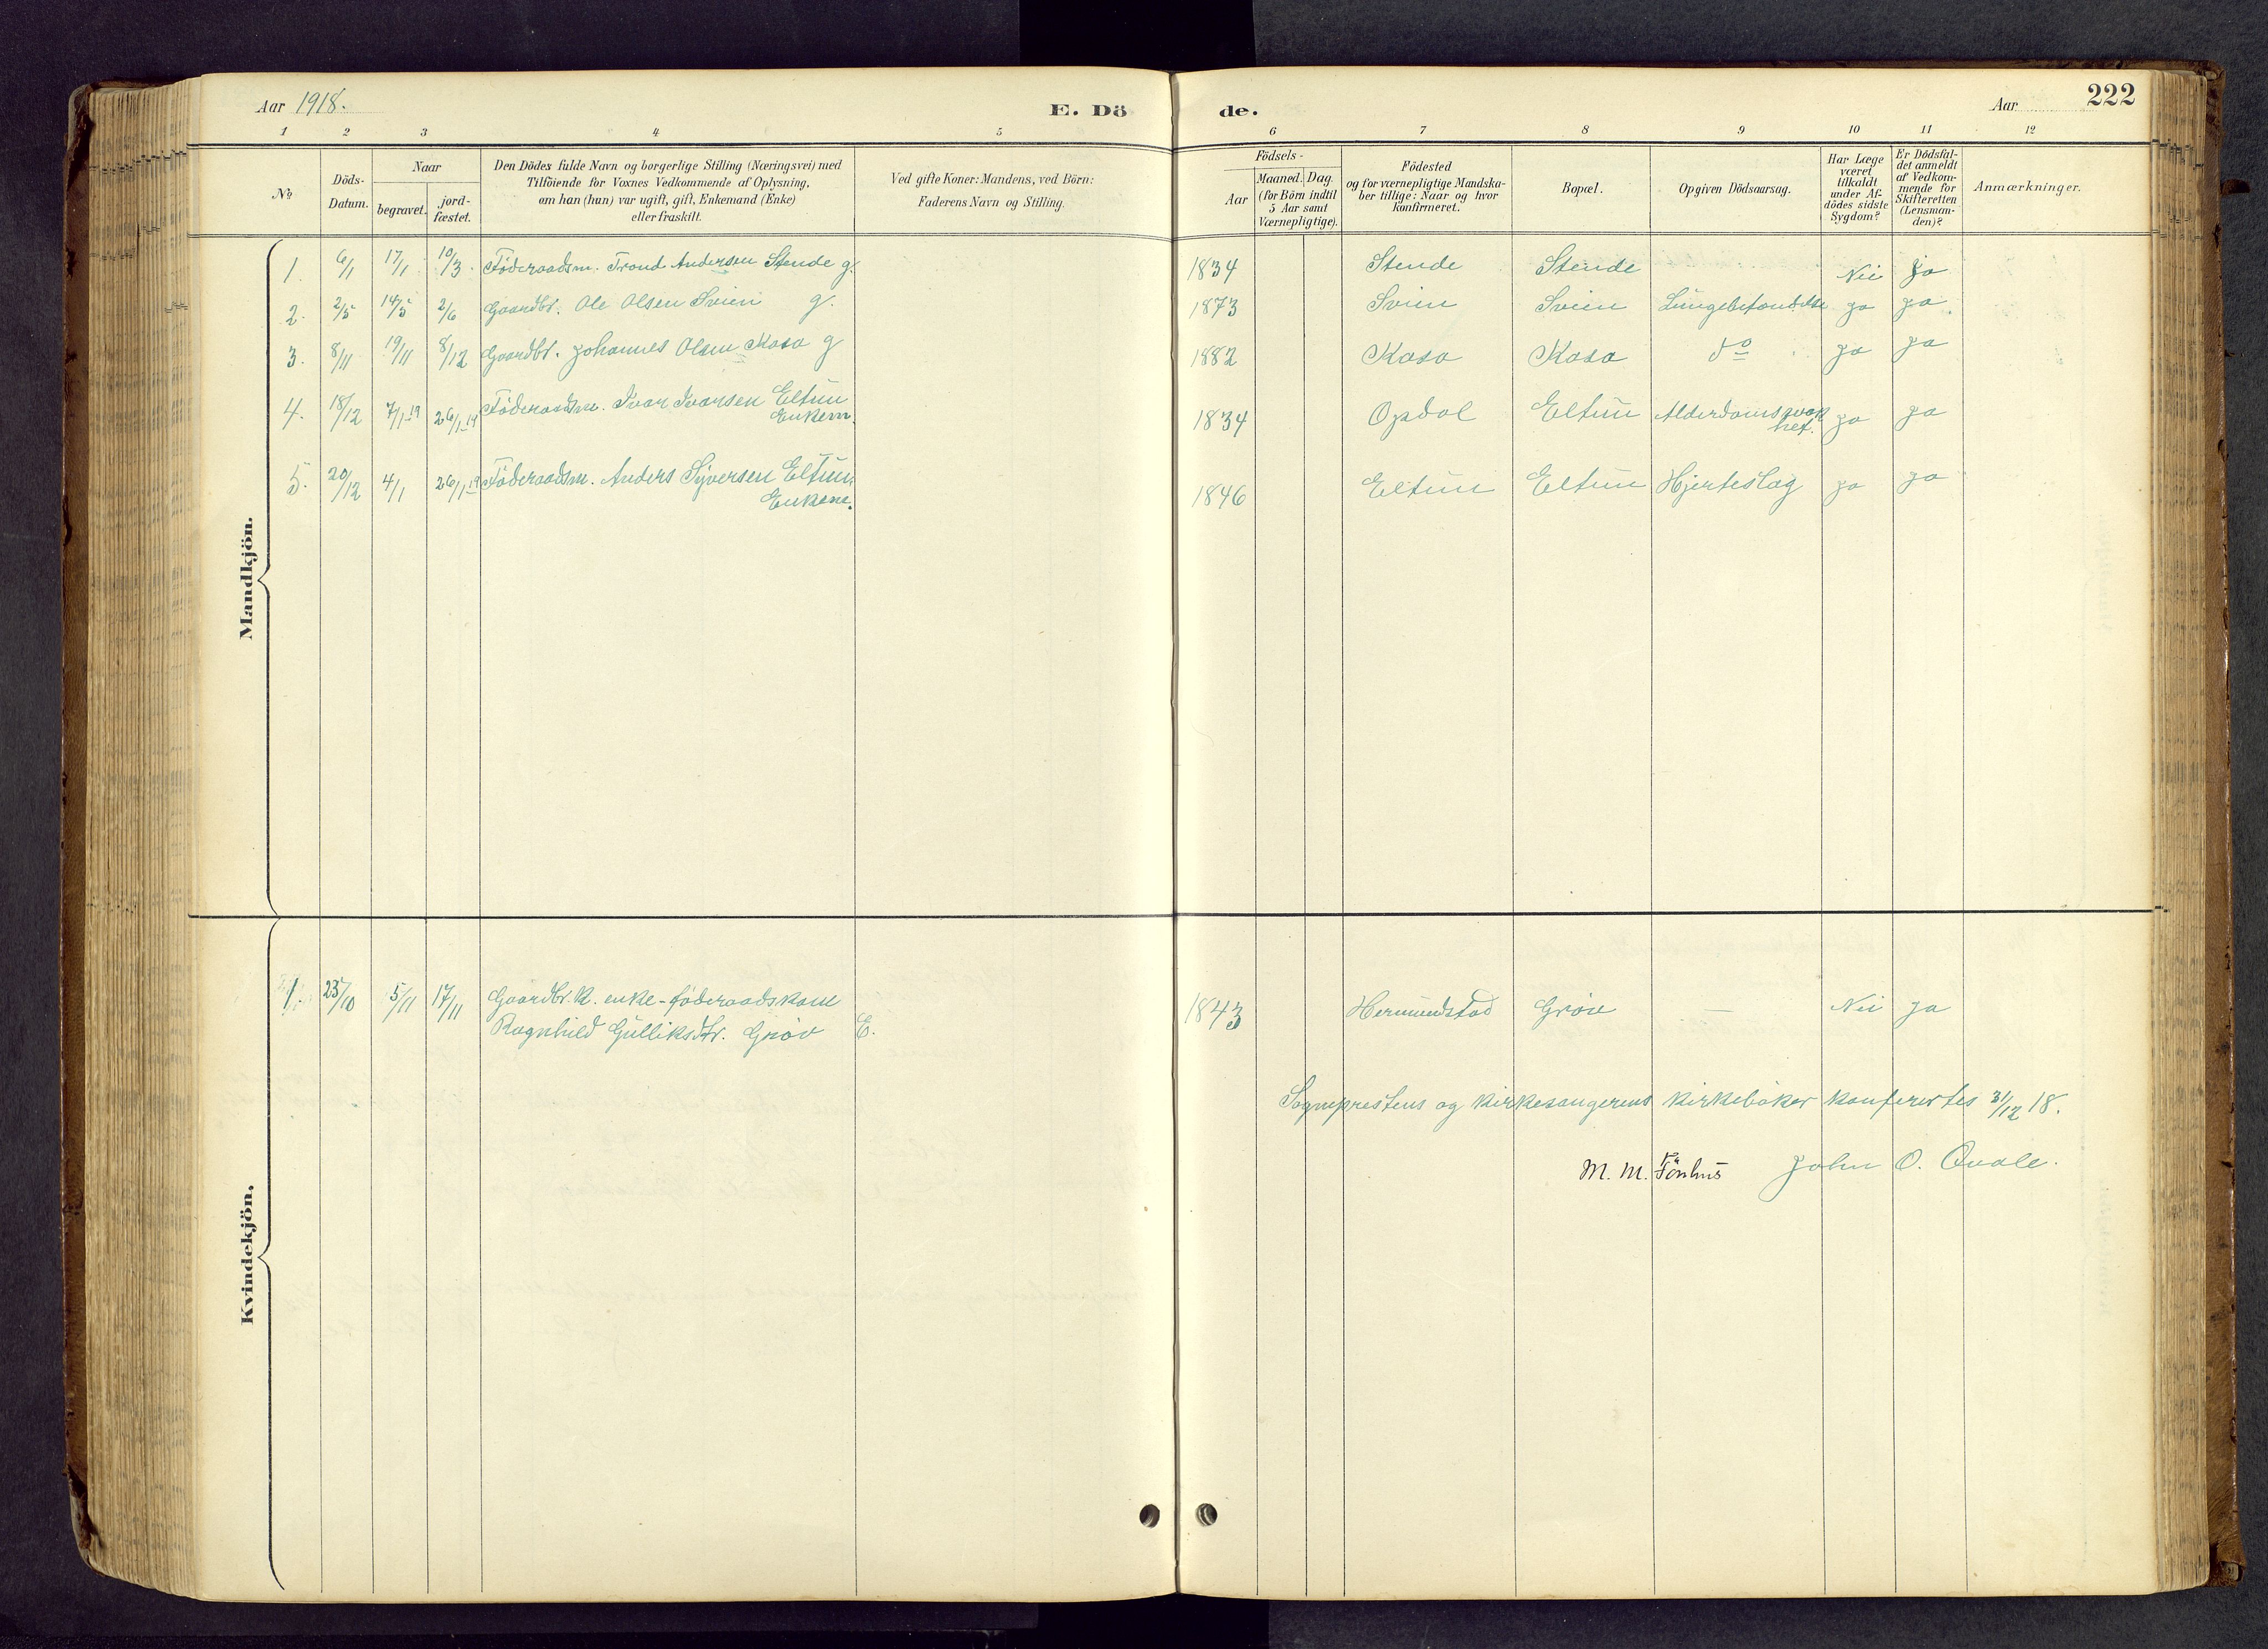 Aar 1918.
E. Dö
de.
Aar
222
1 2 3 4 5 6 7 8 9 10 11 12
№
Döds-
Datum.
Naar
begravet.
jord-
fæstet.
Den Dödes fulde Navn og borgerlige Stilling (Næringsvei) med
Tilföiende for Voxnes Vedkommende af Oplysning,
om han (hun) var ugift, gift, Enkemand (Enke)
eller fraskilt.
Ved gifte Koner: Mandens, ved Börn:
Faderens Navn og Stilling.
Födsels-
Aar
Maaned. Dag.
(for Börn indtil
5 Aar samt
Værnepligtige).
Födested
og for værnepligtige Mandska-
ber tillige: Naar og hvor
konfirmeret.
Bopæl.
Opgiven Dödsaarsag.
Har Læge
været
tilkaldt
under Af-
dödes sidste
Sygdom?
Er Dödsfal-
det anmeldt
af Vedkom-
mende for
Skifteretten
(Lensman-
den)?
Anmærkninger.
Mandkjön.
1. 6/1 17/1 10/3 Föderaadsm. Trond Andersen Stende g. 1834 Stende Stende Nei ja
2. 2/5 14/5 2/6 Gaardbr. Ole Olsen Svien g. 1873 Svien Svien Lungebetændelse ja ja
3. 8/11 19/11 8/12 Gaardbr. Johannes Olsen Kasa g 1882 Kasa Kasa do ja ja
4. 18/12 7/1 19 26/1 19 Föderaadsm. Ivar Ivarsen Eltun 1834 Opdal Eltun Alderdomssvak ja ja
Enkem. het.
5. 20/12 4/1 26/1 19 Föderaadsm. Anders Syversen Eltun. 1846 Eltun Eltun Hjerteslag ja ja
Enkem.
Kvindekjön.
1. 25/10 5/11 17/11 Gaardbr. k. enke - föderaadskone 1843 Hermundstad Gröv — Nei ja
Ragnhild Gulliksdtr. Gröv E.
Sogneprestens og kirkesangerens kirkebøker konfertes 31/12 18.
M. M. Fönhus John O. Qvale.